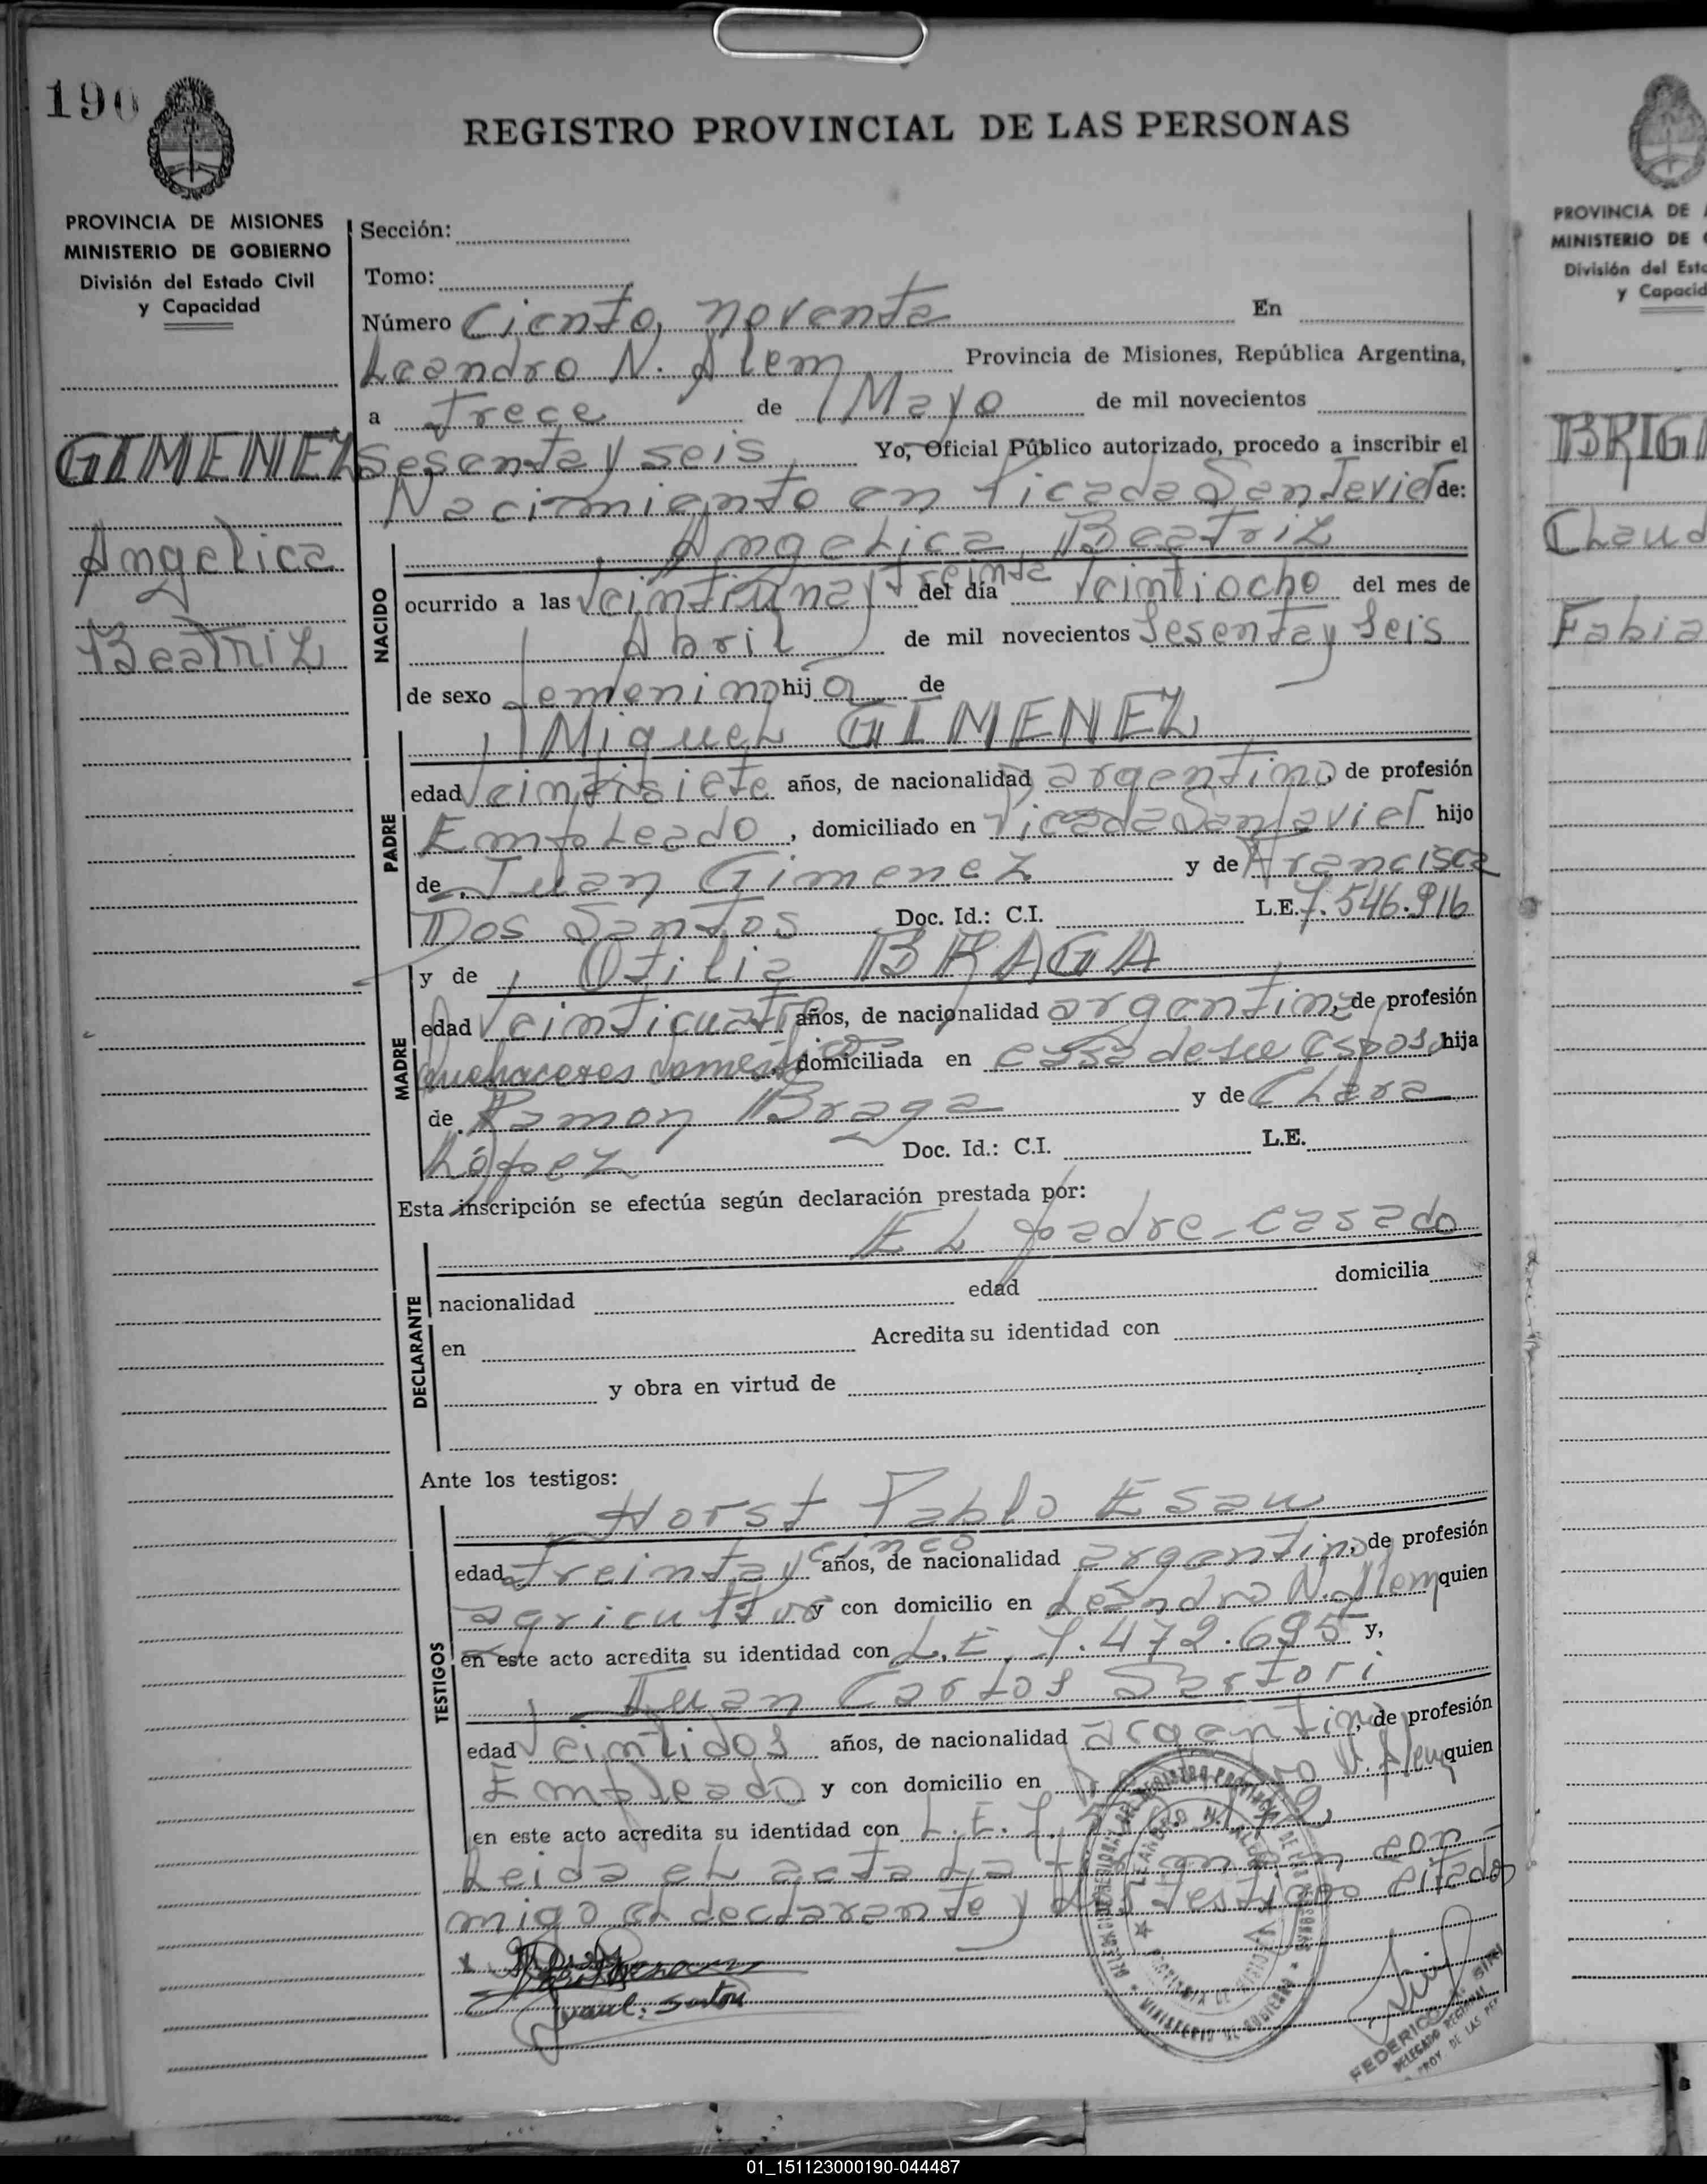 190
REGISTRO PROVINCIAL DE LAS PERSONAS
PROVINCIA DE MISIONES
MINISTERIO DE GOBIERNO
División del Estado Civil
y Capacidad
GIMENEZ
Angelica
Beatriz
Sección:
Tomo:
Número Ciento, noventa En
Leandro N. Alem Provincia de Misiones, República Argentina,
a Trece de Mayo de mil novecientos
Sesenta y seis Yo, Oficial Público autorizado, procedo a inscribir el
Nacimiento en Picada San Javier de:
NACIDO
Angelica Beatriz
ocurrido a las veintiuna y treinta del día veintiocho del mes de
Abril de mil novecientos Sesenta y Seis
de sexo femenino hija de
PADRE
Miguel GIMENEZ
edad Veintisiete años, de nacionalidad argentino, de profesión
Empleado, domiciliado en Picada San Javier hijo
de Juan Gimenez y de Francisca
Dos Santos Doc. Id.: C.I. L.E. 7.546.916
MADRE
y de Otilia BRAGA
edad Veinticuatro años, de nacionalidad argentina, de profesión
quehaceres domésticos, domiciliada en casa de su esposo hija
de Ramon Braga y de Clara
López Doc. Id.: C.I. L.E.
Esta inscripción se efectúa según declaración prestada por:
DECLARANTE
El padre-casado
nacionalidad edad domicilia
en Acredita su identidad con
y obra en virtud de
Ante los testigos:
TESTIGOS
Horst Pablo Esau
edad treinta y cinco años, de nacionalidad argentino, de profesión
agricultor y con domicilio en Leandro N. Alem quien
en este acto acredita su identidad con L.E. 7.472.695 y,
Juan Carlos Sartori
edad Veintidos años, de nacionalidad argentino, de profesión
Empleado y con domicilio en N. Alem quien
en este acto acredita su identidad con L.E. 7.
Leida el acta la firman con-
migo el declarante y los testigos citados
Juan C. Sartori
LEANDRO N. ALEM
MINISTERIO DE GOBIERNO
FEDERICO
DELEGADO REGIONAL
PROV. DE LAS PER
PROVINCIA DE
MINISTERIO DE
División del Esta
y Capacid
BRIGA
Claud
Fabia
01_151123000190-044487